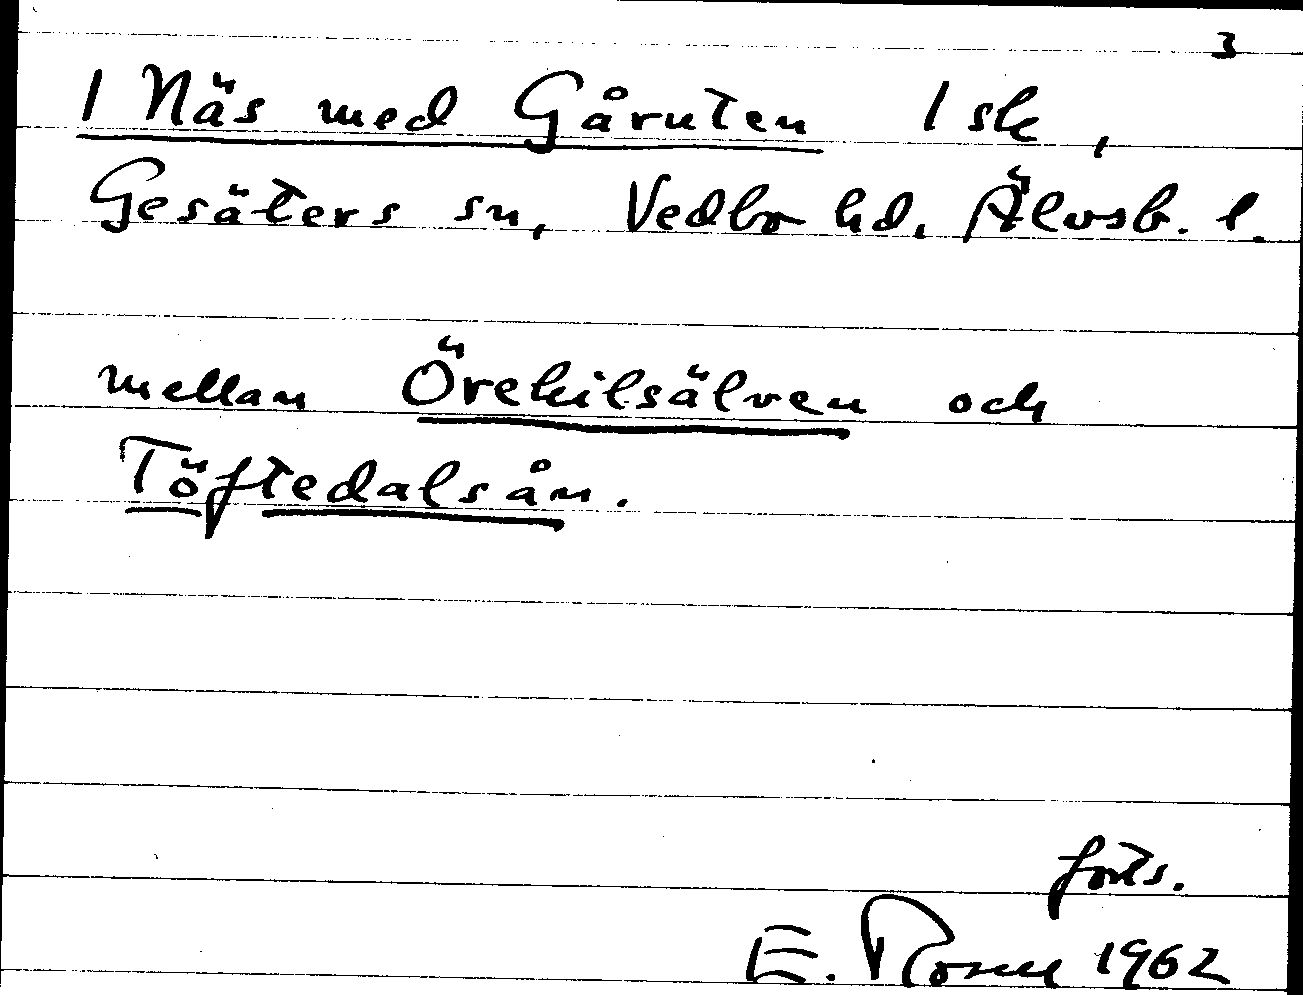 3
1 Näs med Gåruten 1 sk,
Gesäters sn, Vedbo hd. Älvsb. l.
mellan Örekilsälven och
Töftedalsån.
forts.
E. Rosell 1962